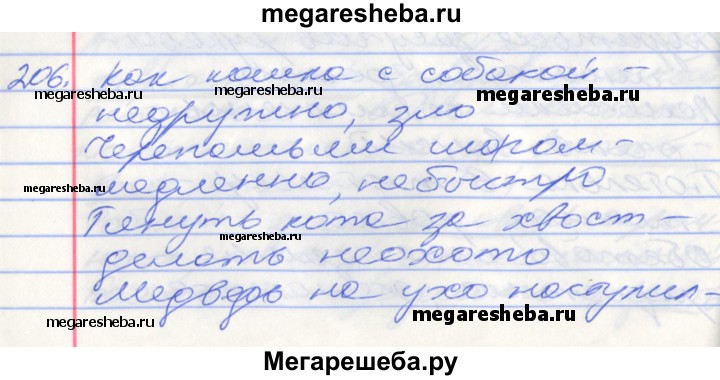 megaresheba.ru
206. Как кошка с собакой -
megaresheba.ru
megaresheba.ru
недружно, зло
Черепашьим шагом -
megaresheba.ru
медленно, небыстро
Тянуть кота за хвост -
megaresheba.ru
делать неохото
Медведь на ухо наступил -
megaresheba.ru
megaresheba.ru
Мегарешеба.ру